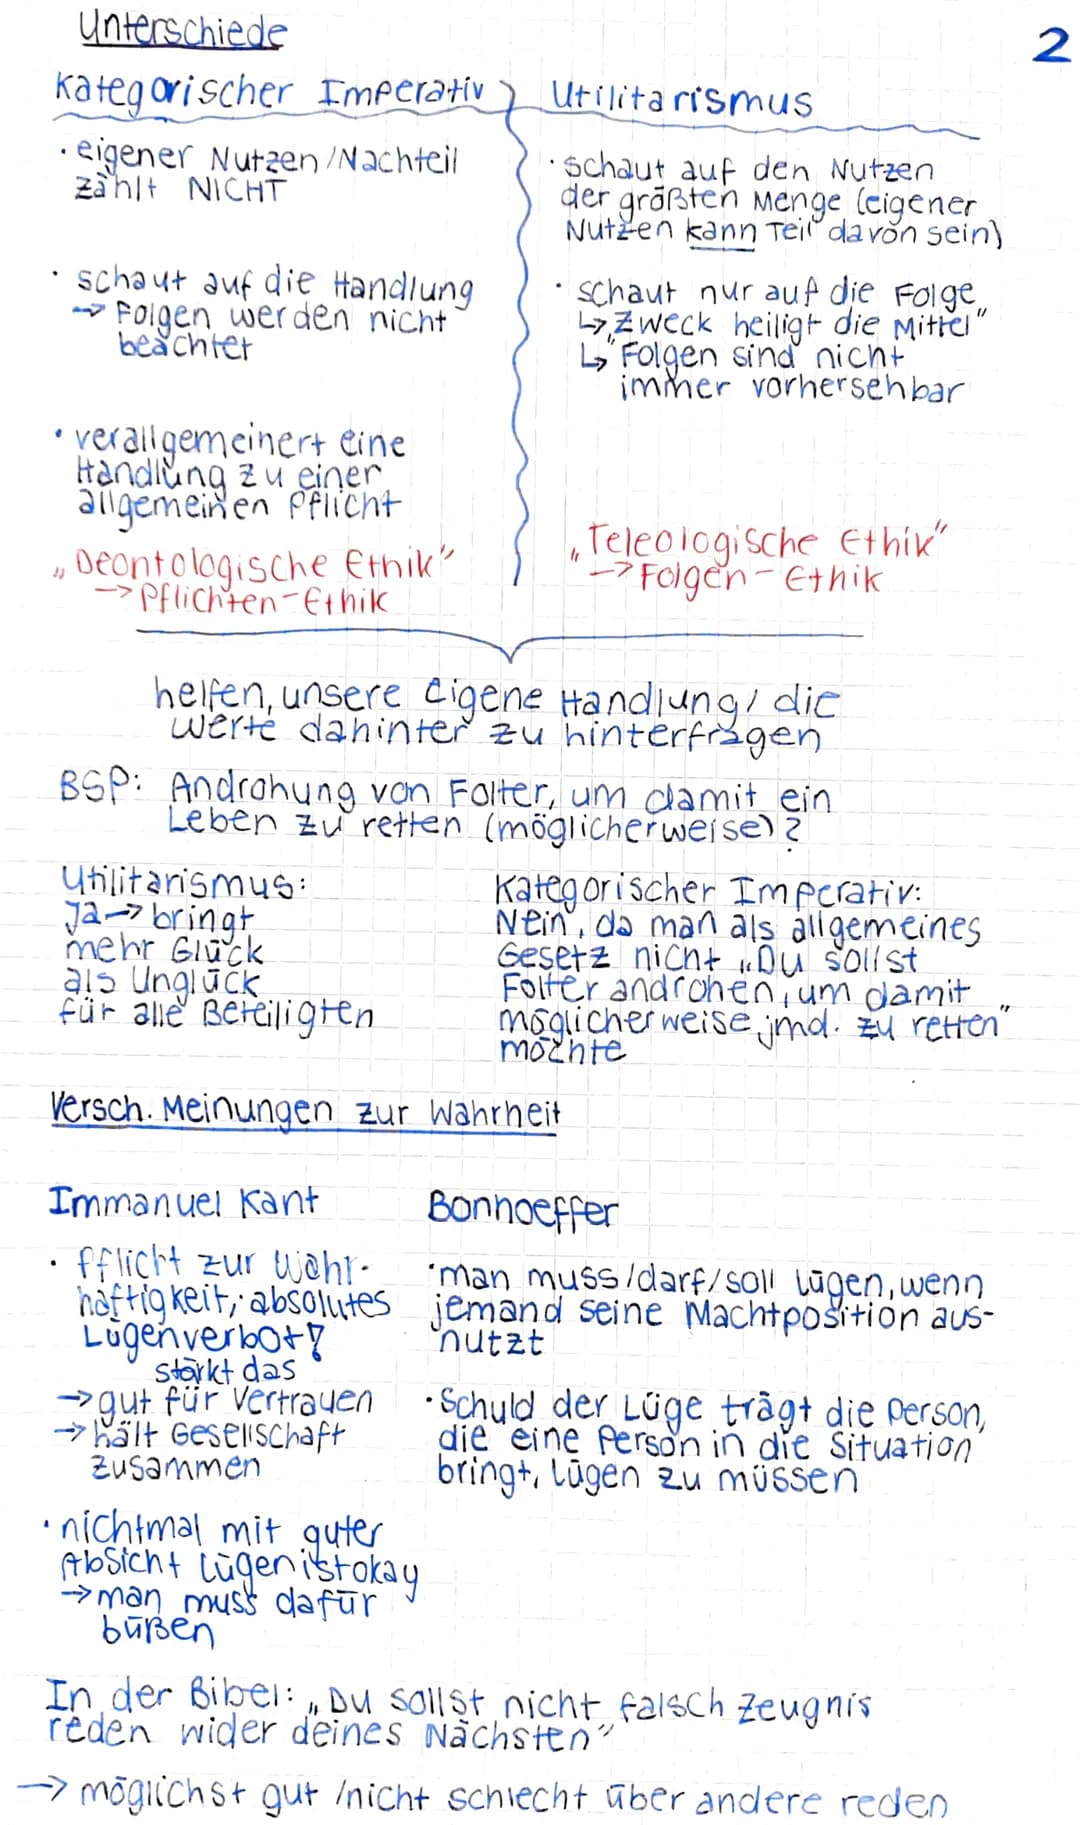 Unterschiede
2
Kategorischer Imperativ
· eigener Nutzen/Nachteil
zählt NICHT
· schaut auf die Handlung
→ Folgen werden nicht
beachtet
· verallgemeinert eine
Handlung zu einer
allgemeinen Pflicht
„Deontologische Ethik"
→ Pflichten-Ethik
Utilitarismus
· schaut auf den Nutzen
der größten Menge (eigener
Nutzen kann Teil davon sein)
· schaut nur auf die Folge
↳ „Zweck heiligt die Mittel"
↳ Folgen sind nicht
immer vorhersehbar
„Teleologische Ethik"
→ Folgen-Ethik
helfen, unsere eigene Handlung/die
Werte dahinter zu hinterfragen
BSP: Androhung von Folter, um damit ein
Leben zu retten (möglicherweise)?
Utilitarismus:
Ja → bringt
mehr Glück
als Unglück
für alle Beteiligten
Kategorischer Imperativ:
Nein, da man als allgemeines
Gesetz nicht „Du sollst
Folter androhen, um damit
möglicherweise jmd. zu retten"
möchte
Versch. Meinungen zur Wahrheit
Immanuel Kant
· Pflicht zur Wahr-
haftigkeit, absolutes
Lügenverbot!
stärkt das
→ gut für Vertrauen
→ hält Gesellschaft
zusammen
· nichtmal mit guter
Absicht lügen ist okay
→ man muss dafür
büßen
Bonhoeffer
· man muss/darf/soll lügen, wenn
jemand seine Machtposition aus-
nutzt
· Schuld der Lüge trägt die Person,
die eine Person in die Situation
bringt, lügen zu müssen
In der Bibel: „Du sollst nicht falsch Zeugnis
reden wider deines Nächsten"
→ möglichst gut /nicht schlecht über andere reden